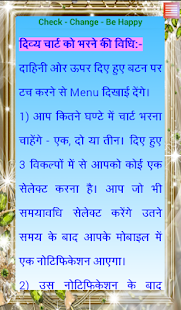 Check - Change - Be Happy
दिव्य चार्ट को भरने की विधि:-
दाहिनी ओर ऊपर दिए हुए बटन पर
टच करने से Menu दिखाई देंगे।
1) आप कितने घण्टे में चार्ट भरना
चाहेंगे - एक, दो या तीन। दिए हुए
3 विकल्पों में से आपको कोई एक
सेलेक्ट करना है। आप जो भी
समयावधि सेलेक्ट करेंगे उतने
समय के बाद आपके मोबाइल में
एक नोटिफिकेशन आएगा।
2) उस नोटिफिकेशन के बाद